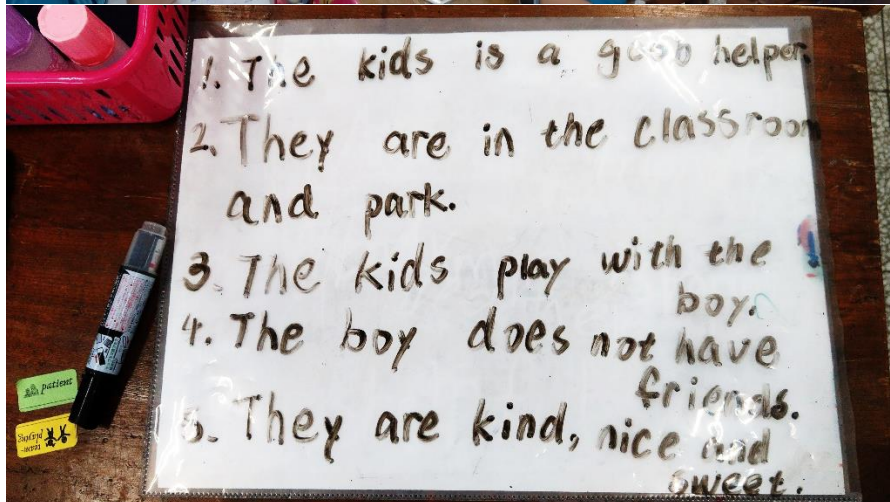 1. The kids is a goob helper.
2. They are in the classroom
and park.
3. The kids play with the
boy.
4. The boy does not have
friends.
5. They are kind, nice and
sweet.
patient
team-
playing